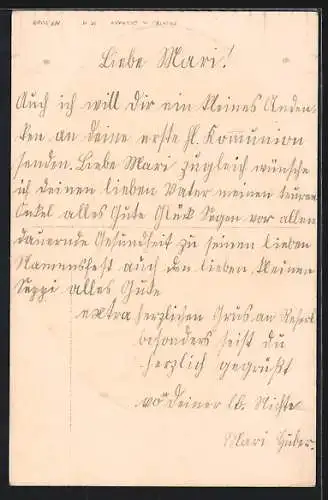 Liebe Mari!
Auch ich will Dir ein kleines Anden-
ken an deine erste hl. Kom̄union
senden. Liebe Mari zugleich wünsche
ich deinen lieben Vater meinen teuren
Onkel alles Gute Glük Segen vor allen
dauernde Gesundheit zu seinen lieben
Namensfest auch den lieben kleinen
Seppi alles Gute
extra herzlichen Grus an
besonders seist du
herzlich gegrüßt
von deiner lb. Nichte
Mari Huber.